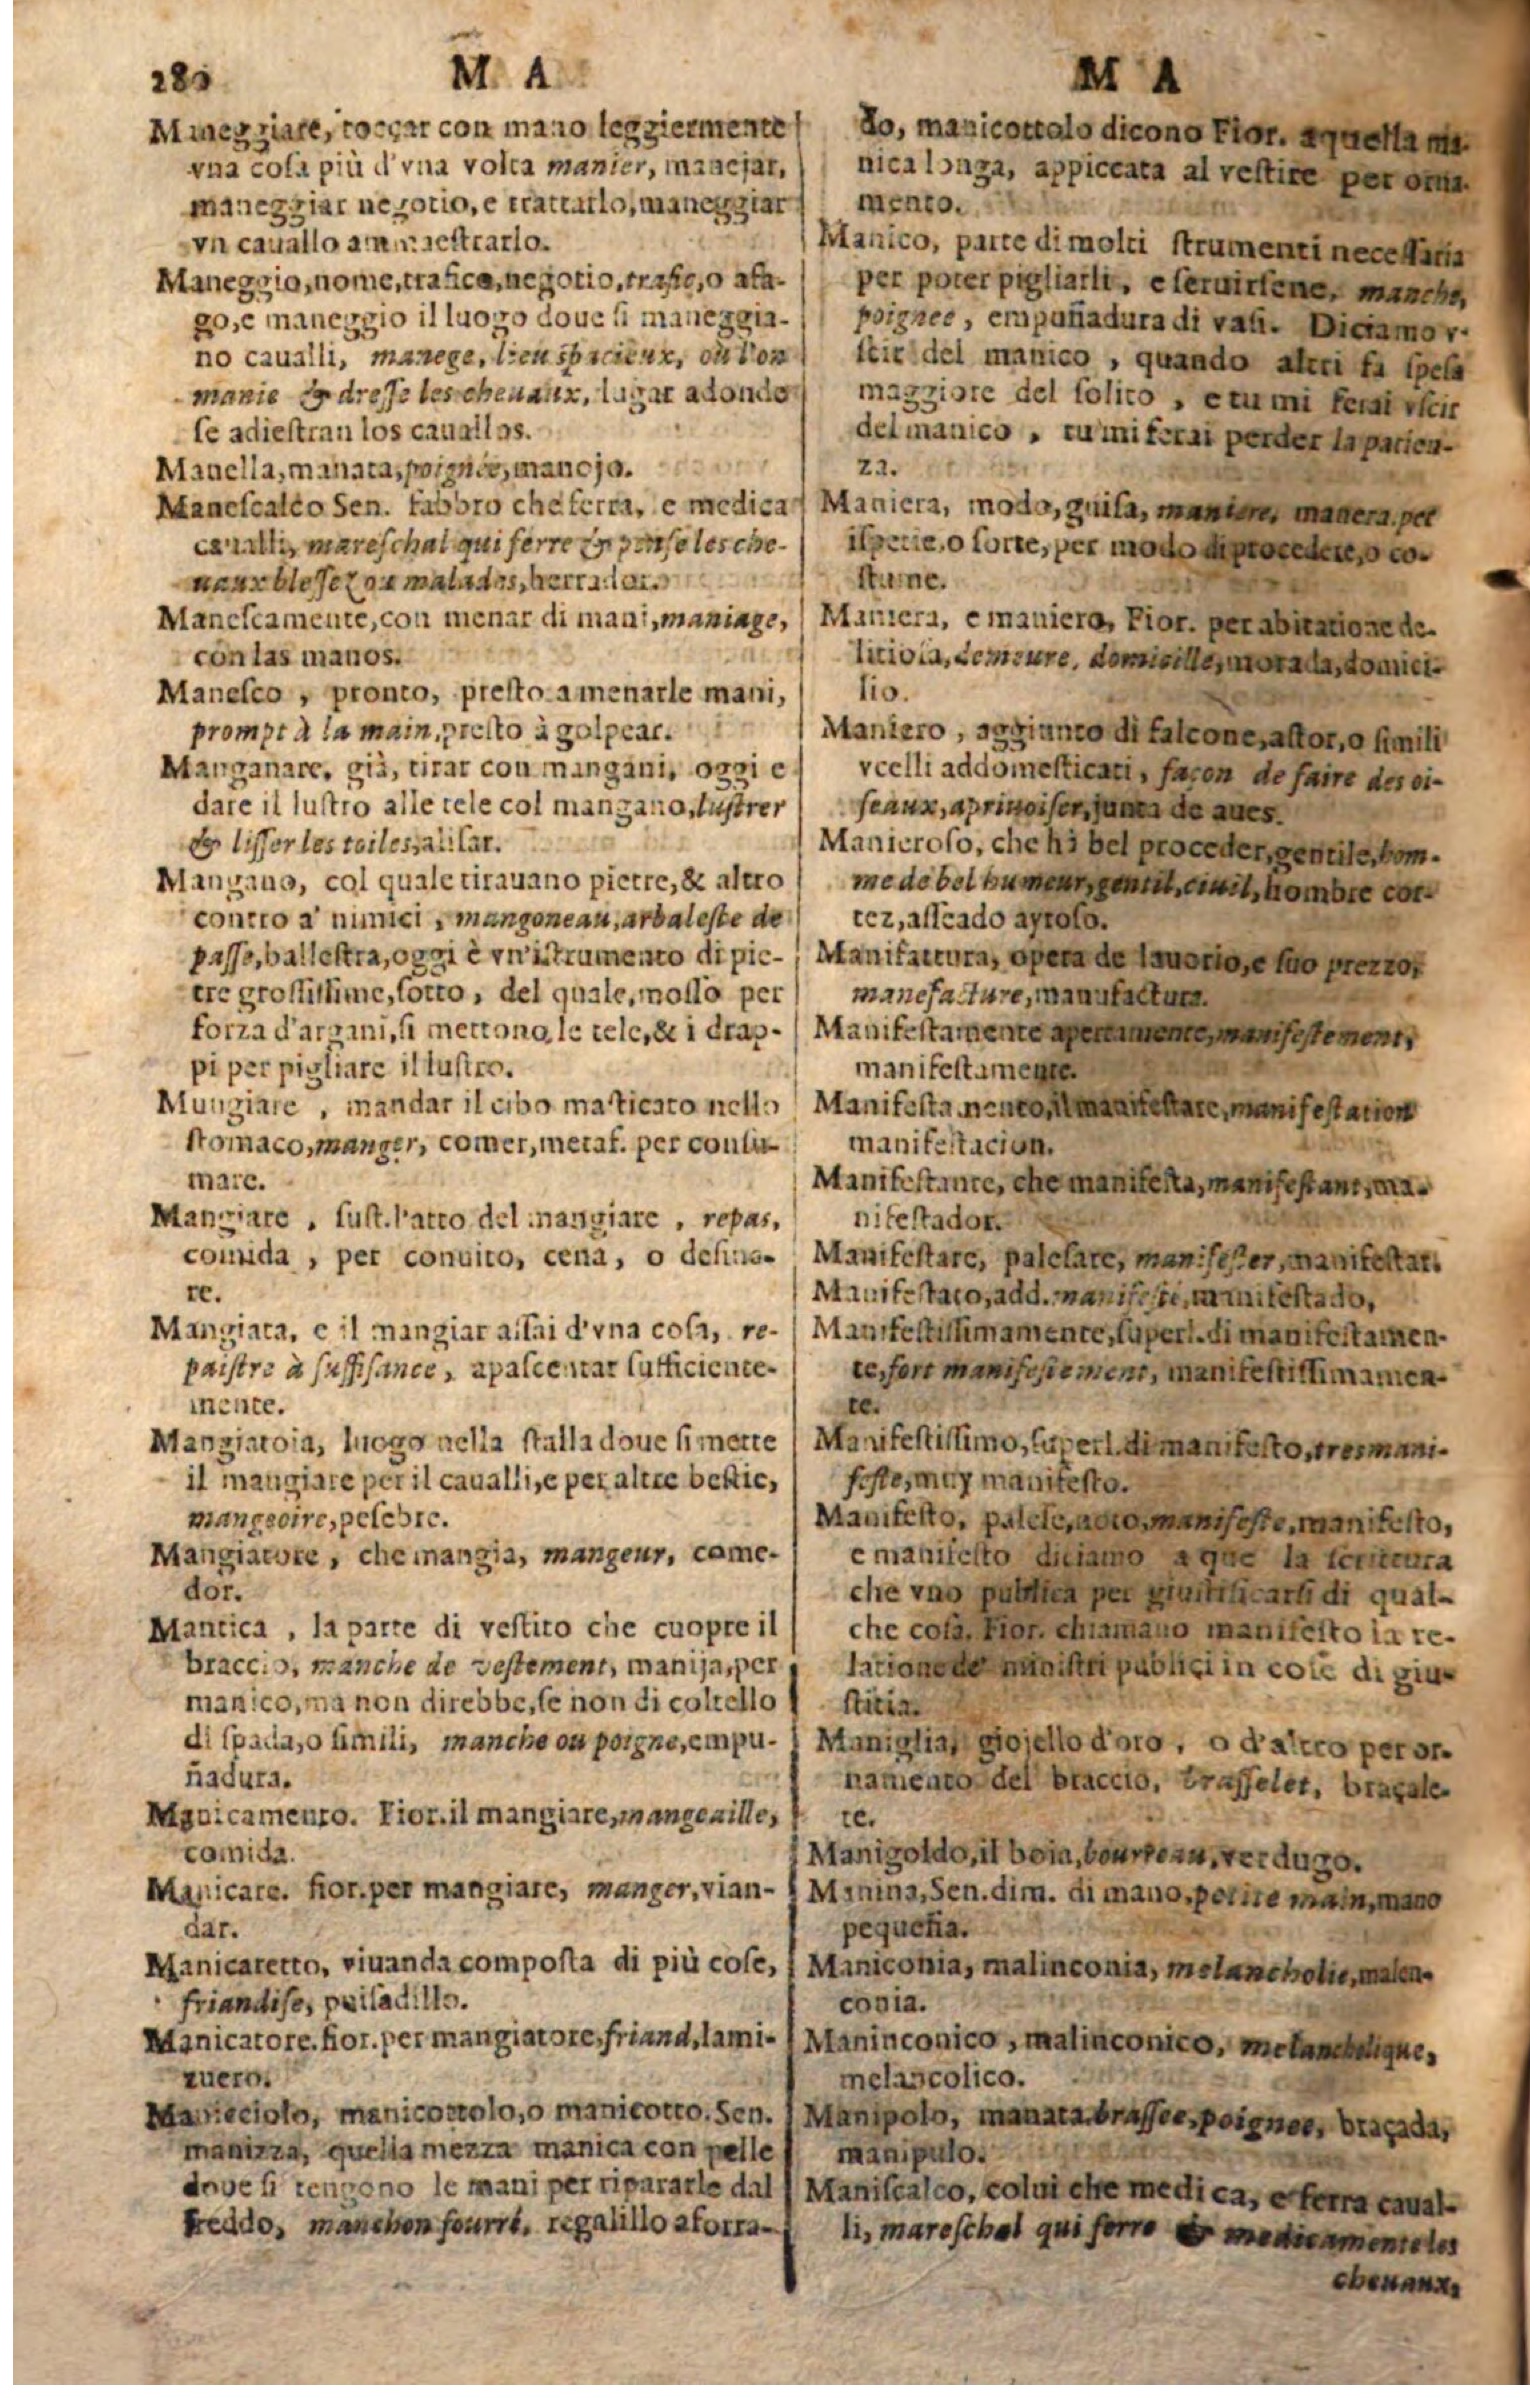 280 M A
Maneggiare, toccar con mano leggiermente
vna coſa più d'vna volta manier, manejar,
maneggiar negotio, e trattarlo, maneggiar
vn cauallo ammaeſtrarlo.
Maneggio, nome, trafico, negotio, trafic, o afa-
go, e maneggio il luogo doue ſi maneggia-
no caualli, manege, lieu spacieux, où l'on
manie & dreſſe les cheuaux, lugar adonde
ſe adieſtran los cauallos.
Manella, manata, poignée, manojo.
Maneſcalco Sen. fabbro che ferra, e medica
caualli, mareſchal qui ferre & penſe les che-
uaux bleſſez ou malades, herrador.
Maneſcamente, con menar di mani, maniage,
con las manos.
Maneſco, pronto, preſto a menarle mani,
prompt à la main, preſto à golpear.
Manganare, già, tirar con mangani, oggi e
dare il luſtro alle tele col mangano, luſtrer
& liſſer les toiles, aliſar.
Mangano, col quale tirauano pietre, & altro
contro a' nimici, mangoneau, arbaleſte de
paſſe, balleſtra, oggi è vn'iſtrumento di pie-
tre groſſiſſime, ſotto, del quale, moſſo per
forza d'argani, ſi mettono le tele, & i drap-
pi per pigliare il luſtro.
Mangiare, mandar il cibo maſticato nello
ſtomaco, manger, comer, metaf. per conſu-
mare.
Mangiare, ſuſt. l'atto del mangiare, repas,
comida, per conuito, cena, o deſina-
re.
Mangiata, e il mangiar aſſai d'vna coſa, re-
paiſtre à ſuffiſance, apaſcentar ſufficiente-
mente.
Mangiatoia, luogo nella ſtalla doue ſi mette
il mangiare per il caualli, e per altre beſtie,
mangeoire, peſebre.
Mangiatore, che mangia, mangeur, come-
dor.
Mantica, la parte di veſtito che cuopre il
braccio, manche de veſtement, manija, per
manico, ma non direbbe, ſe non di coltello
di ſpada, o ſimili, manche ou poigne, empu-
ñadura.
Manicamento. Fior. il mangiare, mangeaille,
comida.
Manicare. fior. per mangiare, manger, vian-
dar.
Manicaretto, viuanda compoſta di più coſe,
friandiſe, puiſadillo.
Manicatore. fior. per mangiatore, friand, lami-
zuero.
Manicciolo, manicottolo, o manicotto. Sen.
manizza, quella mezza manica con pelle
doue ſi tengono le mani per ripararle dal
freddo, manchon fourré, regalillo aforra-
M A
do, manicottolo dicono Fior. a quella ma-
nica longa, appiccata al veſtire per orna-
mento.
Manico, parte di molti ſtrumenti neceſſaria
per poter pigliarli, e ſeruirſene, manche,
poignee, empuñadura di vaſi. Diciamo v-
ſcir del manico, quando altri fa ſpeſa
maggiore del ſolito, e tu mi ferai vſcir
del manico, tu mi ferai perder la patien-
za.
Maniera, modo, guiſa, maniere, manera. per
iſpetie, o ſorte, per modo di procedere, o co-
ſtume.
Maniera, e maniero, Fior. per abitatione de-
litioſa, demeure, domicille, morada, domici-
lio.
Maniero, aggiunto di falcone, aſtor, o ſimili
vcelli addomeſticati, façon de faire des oi-
ſeaux, apriuoiſer, junta de aues.
Manieroſo, che hà bel proceder, gentile, hom-
me de bel humeur, gentil, ciuil, hombre cor-
tez, aſſeado ayroſo.
Manifattura, opera de lauorio, e ſuo prezzo,
manefacture, manufactura.
Manifeſtamente apertamente, manifeſtement,
manifeſtamente.
Manifeſtamento, il manifeſtare, manifeſtation
manifeſtacion.
Manifeſtante, che manifeſta, manifeſtant, ma-
nifeſtador.
Manifeſtare, paleſare, manifeſter, manifeſtar.
Manifeſtato, add. manifeſté, manifeſtado,
Manifeſtiſſimamente, ſuperl. di manifeſtamen-
te, fort manifeſtement, manifeſtiſſimamen-
te.
Manifeſtiſſimo, ſuperl. di manifeſto, tres mani-
feſte, muy manifeſto.
Manifeſto, paleſe, noto, manifeſte, manifeſto,
e manifeſto diciamo a que la ſcrittura
che vno publica per giuſtificarſi di qual-
che coſa. Fior. chiamano manifeſto la re-
latione de' miniſtri publici in coſe di giu-
ſtitia.
Maniglia, giojello d'oro, o d'altro per or-
namento del braccio, braſſelet, braçale-
te.
Manigoldo, il boia, bourreau, verdugo.
Manina, Sen. dim. di mano, petite main, mano
pequeña.
Maniconia, malinconia, melancholie, malen-
conia.
Maninconico, malinconico, melancholique,
melancolico.
Manipolo, manata. braſſee, poignee, braçada,
manipulo.
Maniſcalco, colui che medica, e ferra caual-
li, mareſchal qui ferre & medicamente les
cheuaux,